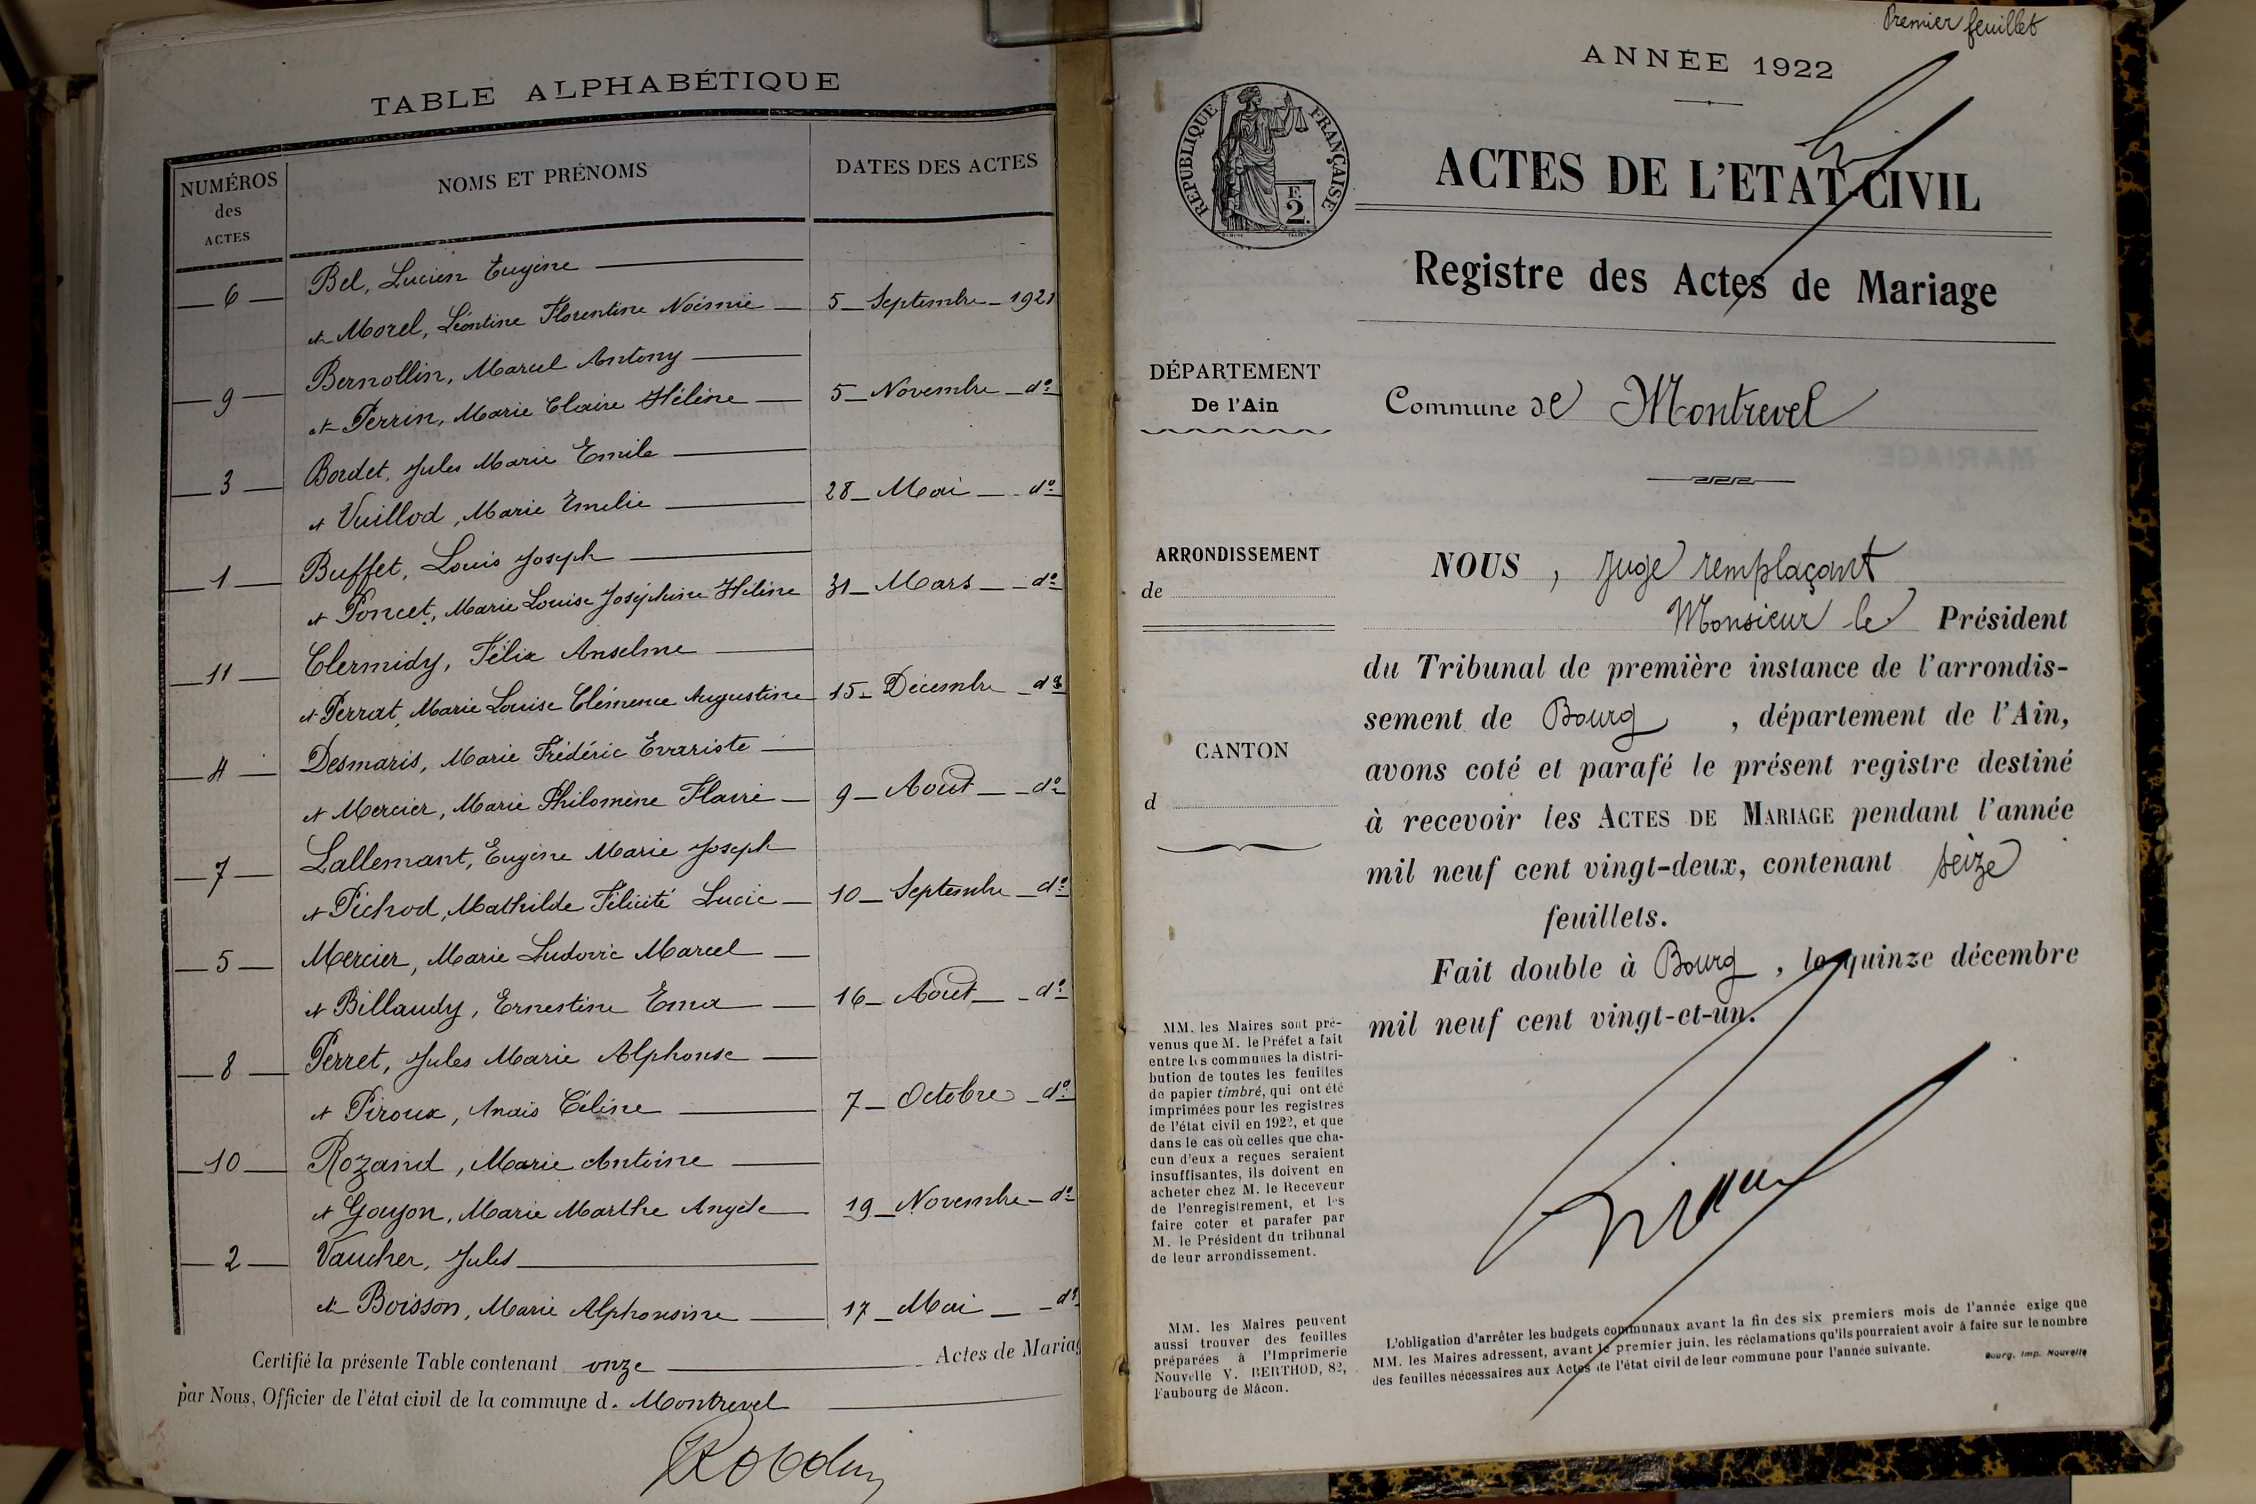 TABLE ALPHABÉTIQUE
NUMÉROS
des
ACTES
NOMS ET PRÉNOMS
DATES DES ACTES
Bel, Lucien Eugène
6
et Morel, Léontine Florentine Noémie 5 Septembre 1921
Bernollin, Marcel Antony
9
et Perrin, Marie Claire Hélène 5 Novembre do
Bordet, Jules Marie Emile
3
et Vuillod, Marie Emelie 28 Mai do
Buffet, Louis Joseph
1
et Poncet, Marie Louise Joséphine Hélène 31 Mars do
Clermidy, Félix Anselme
11
et Perrat, Marie Louise Clémence Augustine 15 Décembre do
Desmaris, Marie Frédéric Evariste
4
et Mercier, Marie Philomène Flavie 9 Août do
Lallemant, Eugène Marie Joseph
7
et Pichod, Mathilde Félicité Lucie 10 Septembre do
Mercier, Marie Ludovic Marcel
5
et Billaudy, Ernestine Ema 16 Août do
Perret, Jules Marie Alphonse
8
et Piroux, Anaïs Céline 7 Octobre do
10 Rozand, Marie Antoine
et Goujon, Marie Marthe Angèle 19 Novembre do
2 Vaucher, Jules
et Boisson, Marie Alphonsine 17 Mai do
Certifié la présente Table contenant onze Actes de Mariag
par Nous, Officier de l'état civil de la commune d. Montrevel
Premier feuillet
ANNÉE 1922
RÉPUBLIQUE FRANÇAISE
F.
2.
ACTES DE L'ETAT-CIVIL
Registre des Actes de Mariage
DÉPARTEMENT
De l'Ain
Commune de Montrevel
ARRONDISSEMENT
de
CANTON
d
NOUS, Juge remplaçant
Monsieur le Président
du Tribunal de première instance de l'arrondis-
sement de Bourg, département de l'Ain,
avons coté et parafé le présent registre destiné
à recevoir les ACTES DE MARIAGE pendant l'année
mil neuf cent vingt-deux, contenant seize
feuillets.
Fait double à Bourg, le quinze décembre
mil neuf cent vingt-et-un.
MM. les Maires sont pré-
venus que M. le Préfet a fait
entre les communes la distri-
bution de toutes les feuilles
de papier timbré, qui ont été
imprimées pour les registres
de l'état civil en 1922, et que
dans le cas où celles que cha-
cun d'eux a reçues seraient
insuffisantes, ils doivent en
acheter chez M. le Receveur
de l'enregistrement, et les
faire coter et parafer par
M. le Président du tribunal
de leur arrondissement.
MM. les Maires peuvent
aussi trouver des feuilles
préparées à l'Imprimerie
Nouvelle V. BERTHOD, 82,
Faubourg de Mâcon.
L'obligation d'arrêter les budgets communaux avant la fin des six premiers mois de l'année exige que
MM. les Maires adressent, avant le premier juin, les réclamations qu'ils pourraient avoir à faire sur le nombre
des feuilles nécessaires aux Actes de l'état civil de leur commune pour l'année suivante.
Bourg, Imp. Nouvelle